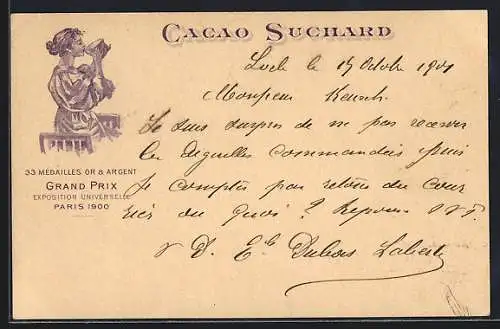 CACAO SUCHARD
33 MÉDAILLES OR & ARGENT
GRAND PRIX
EXPOSITION UNIVERSELLE
PARIS 1900
Locle le 15 Octobre 1901
Monsieur
Je suis surpris de ne pas recevoir
les aiguilles commandées puis
je compter par retour du cour
rier ou quoi ? Repons